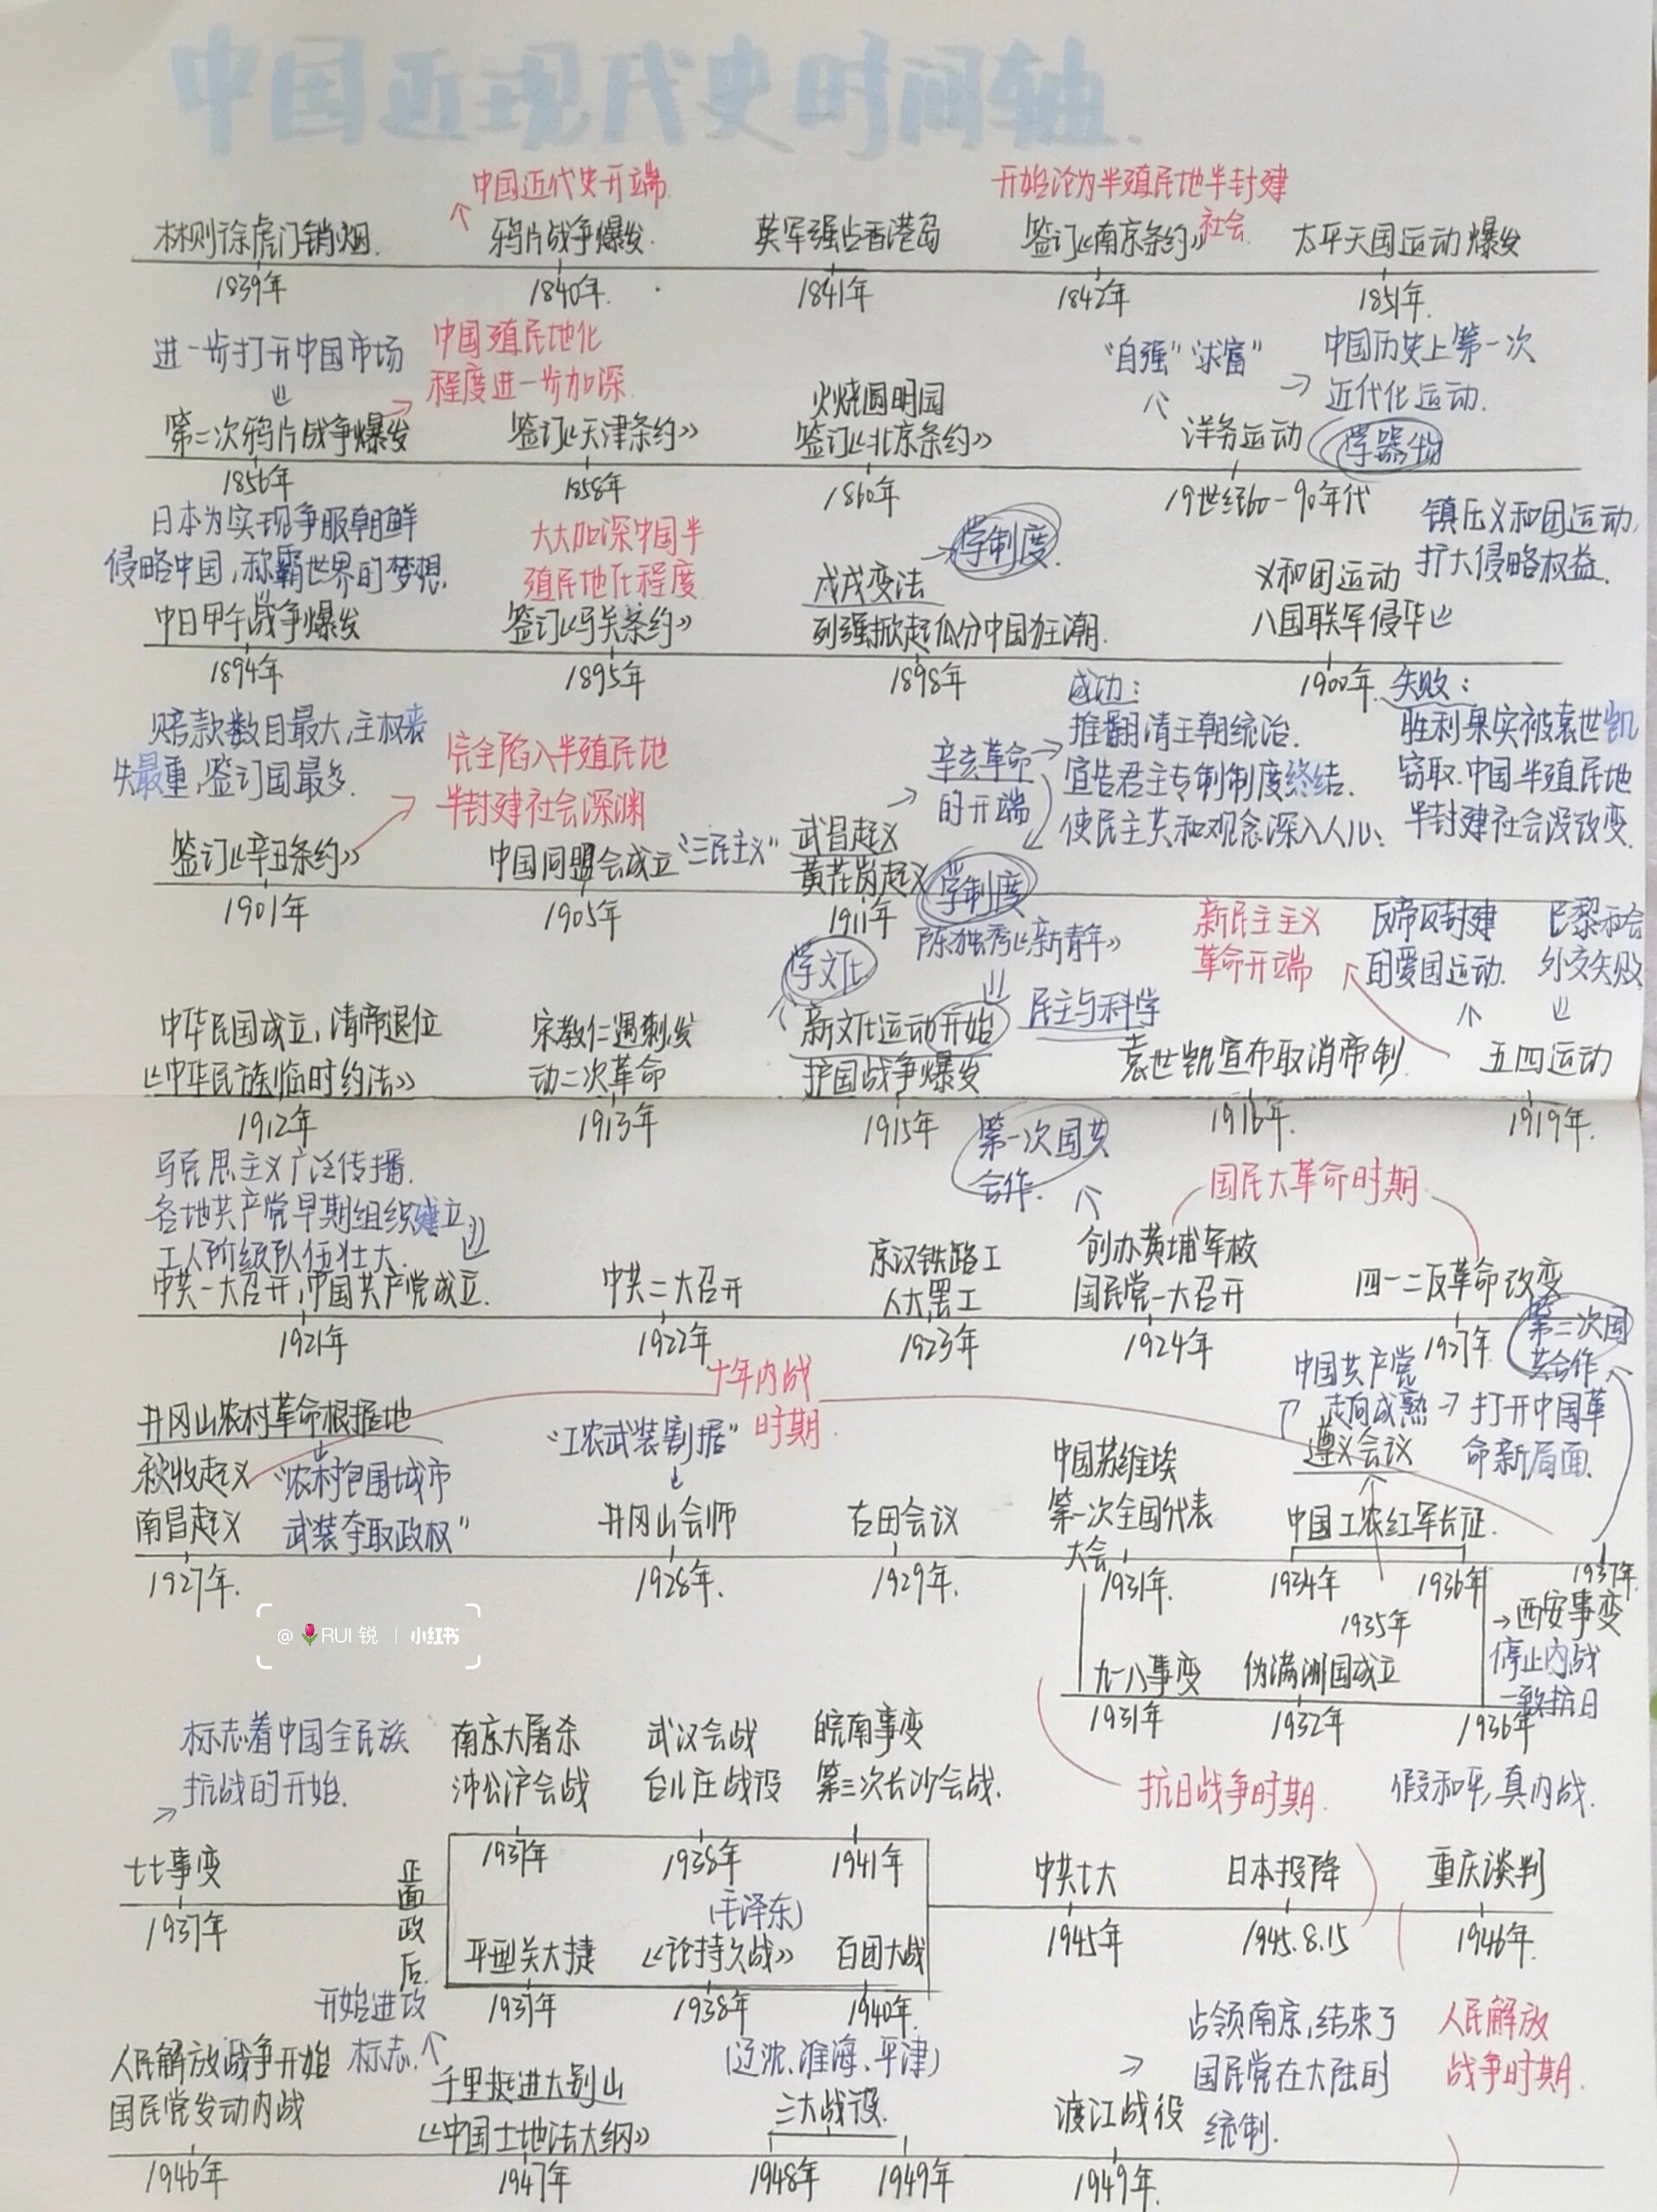 中国近现代史时间轴.
中国近代史开端.
开始沦为半殖民地半封建
社会.
林则徐虎门销烟. 鸦片战争爆发. 英军强占香港岛 签订《南京条约》 太平天国运动爆发
1839年 1840年. 1841年 1842年 1851年.
进一步打开中国市场
中国殖民地化
程度进一步加深.
"自强""求富"
中国历史上第一次
近代化运动.
火烧圆明园
第二次鸦片战争爆发 签订《天津条约》 签订《北京条约》 洋务运动 学器物
1856年 1858年 1860年 19世纪60-90年代
日本为实现争服朝鲜
侵略中国,称霸世界的梦想.
大大加深中国半
殖民地化程度
学制度.
镇压义和团运动,
扩大侵略权益.
戊戌变法
义和团运动
中日甲午战争爆发 签订《马关条约》 列强掀起瓜分中国狂潮. 八国联军侵华
1894年 1895年 1898年 1900年
赔款数目最大,主权丧
失最重,签订国最多.
完全陷入半殖民地
半封建社会深渊
辛亥革命
的开端
成功:
推翻清王朝统治.
宣告君主专制制度终结.
使民主共和观念深入人心;
失败:
胜利果实被袁世凯
窃取.中国半殖民地
半封建社会没改变.
签订《辛丑条约》 中国同盟会成立 "三民主义" 武昌起义
黄花岗起义 学制度
1901年 1905年 1911年
学文化
陈独秀《新青年》
民主与科学
新民主主义
革命开端
反帝反封建
的爱国运动.
巴黎和会
外交失败
中华民国成立,清帝退位
《中华民族临时约法》
宋教仁遇刺发
动二次革命
新文化运动开始
护国战争爆发
袁世凯宣布取消帝制 五四运动
1912年 1913年 1915年 1916年. 1919年.
马克思主义广泛传播.
各地共产党早期组织建立,
工人阶级队伍壮大.
第一次国共
合作.
国民大革命时期
中共一大召开,中国共产党成立. 中共二大召开
京汉铁路工
人大罢工
创办黄埔军校
国民党一大召开
四一二反革命改变
1921年 1922年 1923年 1924年 1927年
第二次国
共合作
十年内战
时期
中国共产党
走向成熟
打开中国革
命新局面.
井冈山农村革命根据地
秋收起义
南昌起义
"农村包围城市
武装夺取政权"
"工农武装割据"
井冈山会师 古田会议
中国苏维埃
第一次全国代表
大会
遵义会议
中国工农红军长征.
1927年. 1928年. 1929年. 1931年. 1934年 1936年 1937年.
1935年
@🌷RUI 锐 | 小红书
西安事变
停止内战
一致抗日
九一八事变 伪满洲国成立
1931年 1932年 1936年
抗日战争时期.
标志着中国全民族
抗战的开始.
南京大屠杀 武汉会战 皖南事变
淞沪会战 台儿庄战役 第三次长沙会战.
假和平,真内战.
七七事变
1937年
正面政后.
1937年 1938年 1941年
(毛泽东)
平型关大捷 《论持久战》 百团大战
1937年 1938年 1940年.
中共七大 日本投降 重庆谈判
1945年 1945.8.15 1946年.
开始进攻
标志.
人民解放战争开始
国民党发动内战
千里挺进大别山
《中国土地法大纲》
(辽沈、淮海、平津)
三大战役.
渡江战役
占领南京,结束了
国民党在大陆的
统制.
人民解放
战争时期.
1946年 1947年 1948年 1949年 1949年.